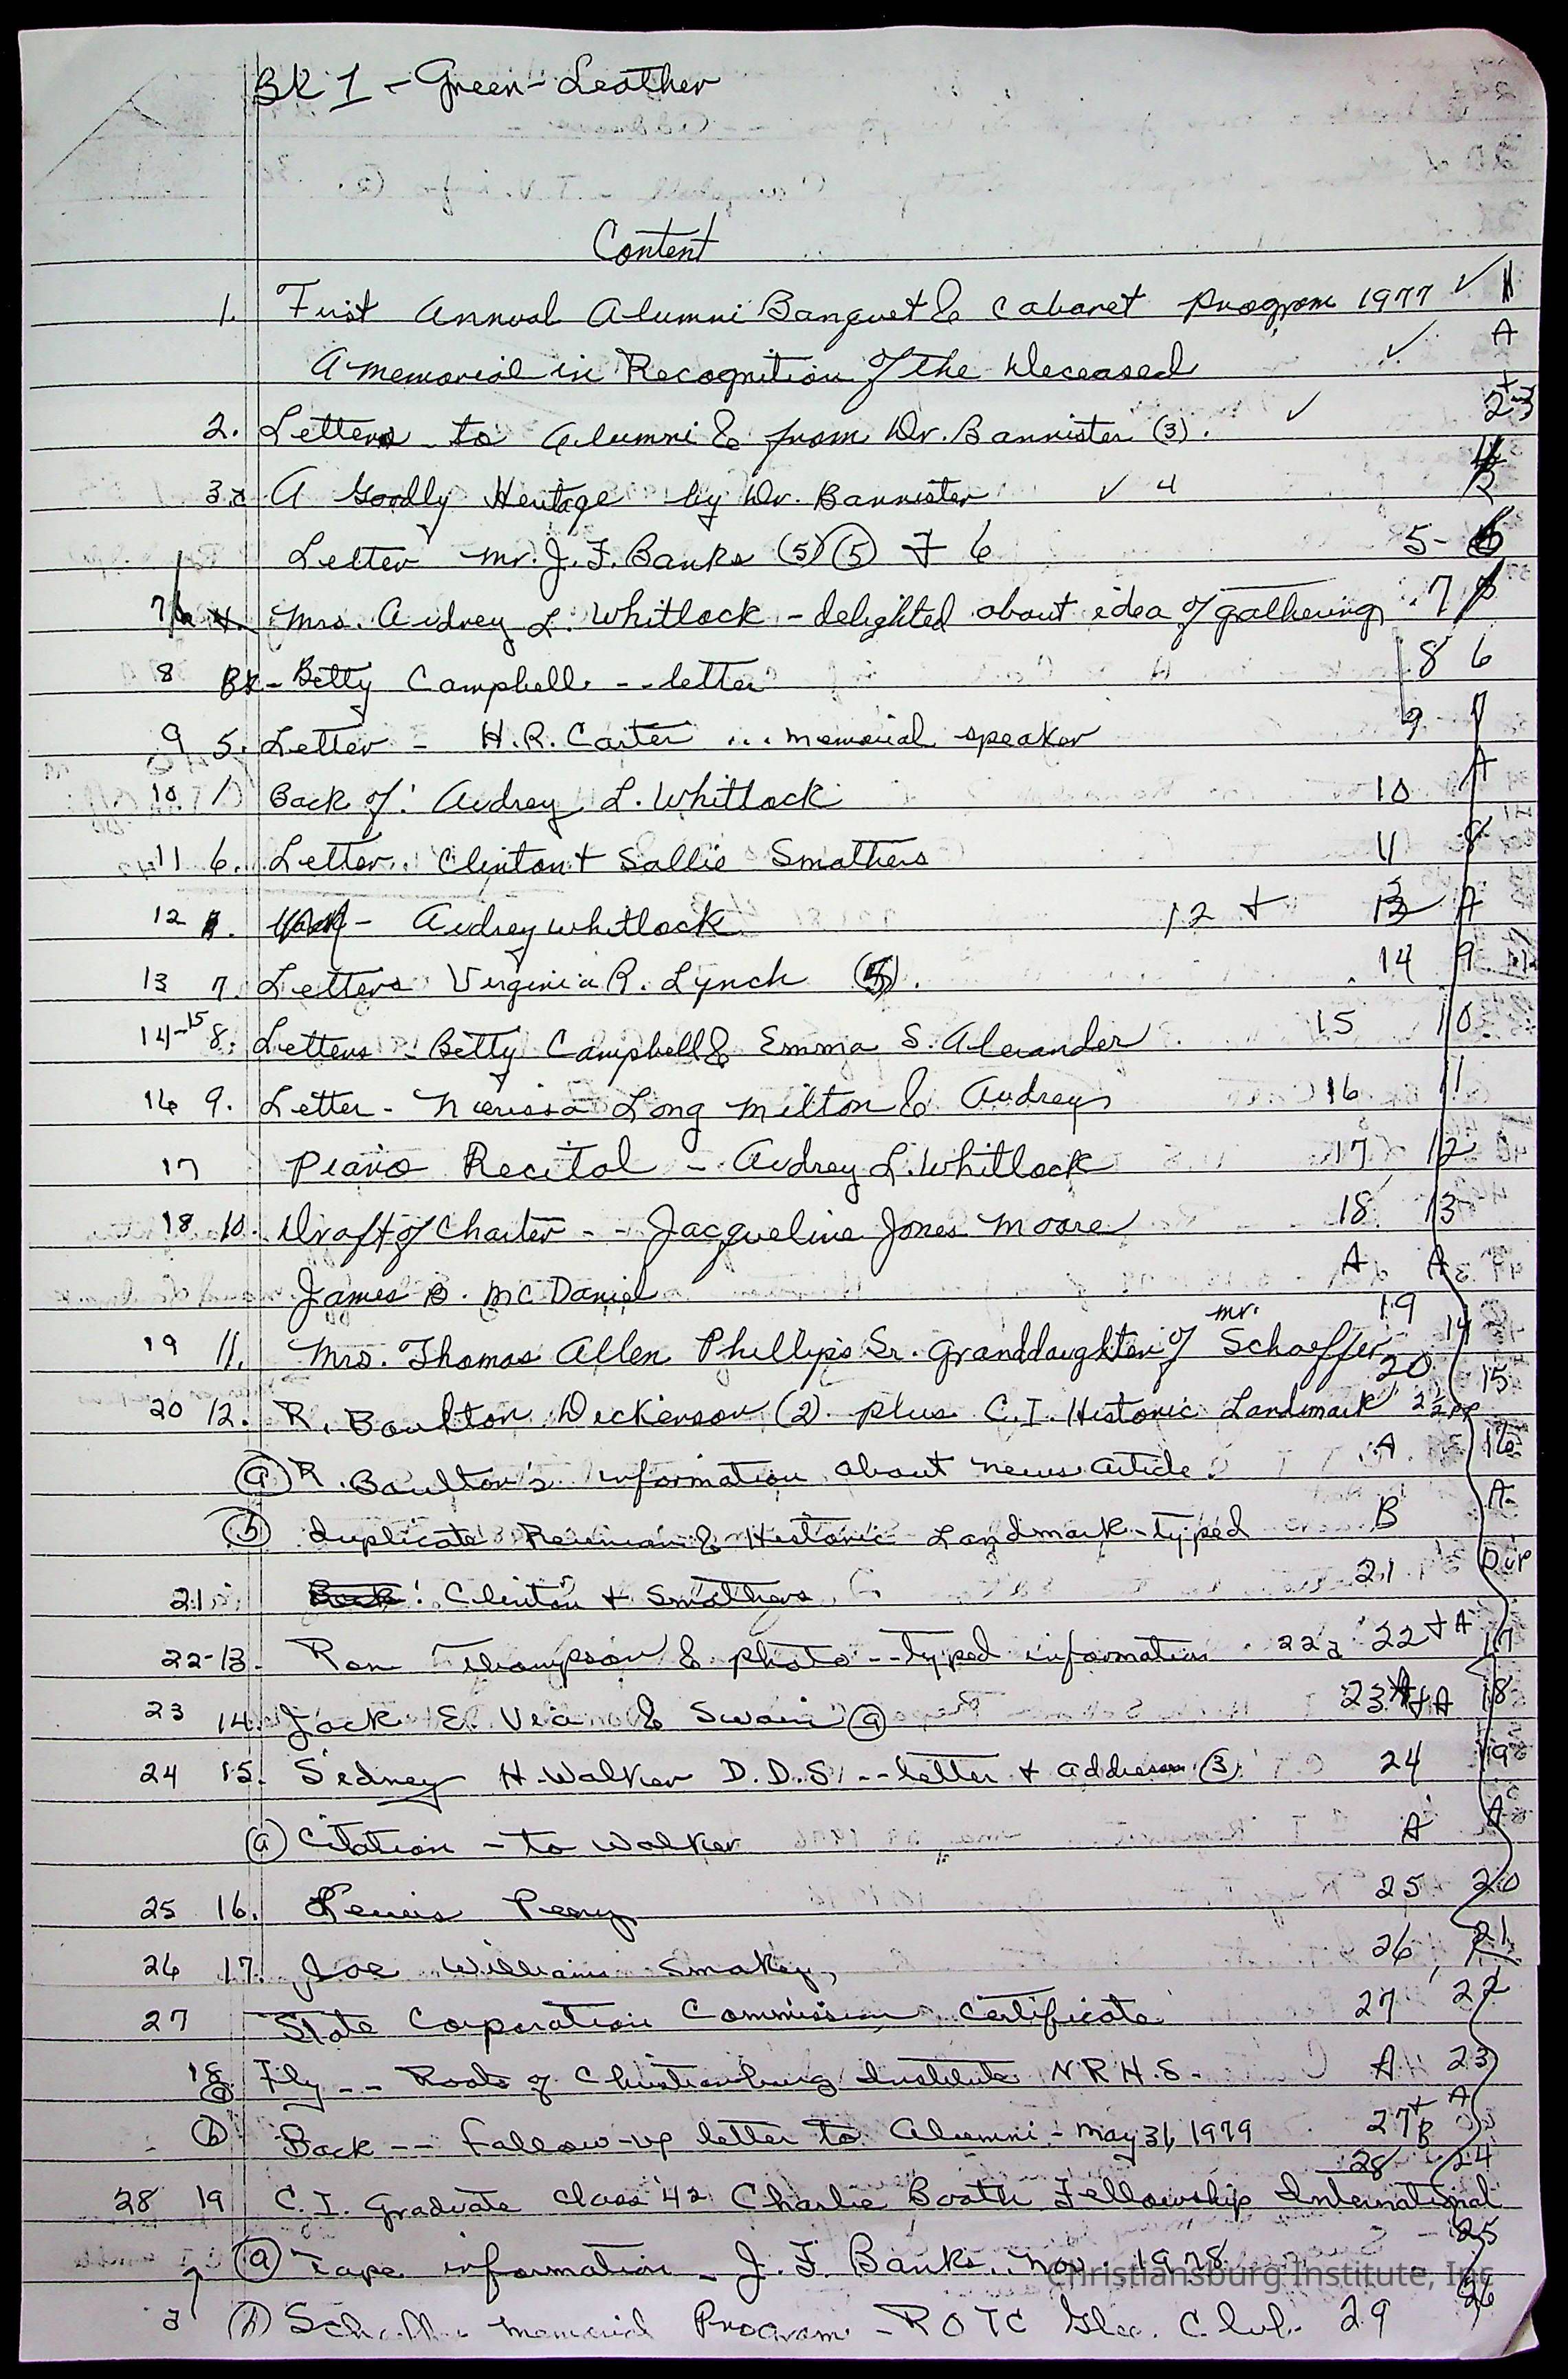 BK 1 - Green - Leather
Content
1. First Annual Alumni Banquet & Cabaret Program 1977 ✓ 1
A memorial in Recognition of the Deceased ✓ A
2. Letters to Alumni & from Dr. Bannister (3). ✓ 2+3
3a A Goodly Heritage by Dr. Bannister ✓ 4
Letter Mr. J. F. Banks (5) (5) + 6 5-6
7 Mrs. Audrey L. Whitlock - delighted about idea of gathering .7
8 Bk - Betty Campbell -- letter 8 6
9 5. Letter - H.R. Carter ... memorial speaker 9 7
10 Back of: Audrey L. Whitlock 10 A
11 6. Letter. Clinton + Sallie Smothers 11 8
12 - Audrey Whitlock 12 + 13 A
13 7. Letters Virginia R. Lynch (5). 14 9
14-15 8. Letters - Betty Campbell & Emma S. Alexander 15 10
16 9. Letter - Nerissa Long Milton & Audrey 16 11
17 Piano Recital - Audrey L. Whitlock 17 12
18 10. Draft of Charter -- Jacqueline Jones Moore 18 13
James B. McDaniel A A
19 11. Mrs. Thomas Allen Phillips Sr. Granddaughter of Mr. Schaeffer 19 14
20 12. R. Boulton Dickerson (2) plus C.I. Historic Landmark 20 2 1/2 pp 15
(a) R. Boulton's information about news article. A 16
(b) duplicate Reunion & Historic Landmark - typed B A
21 Back: Clinton + Smothers 21 Dup
22-13. Ron Thompson & photo -- typed information 22a 22+A 17
23 14. Jack E. Via & Swain (a) 23 +A 18
24 15. Sidney H. Walker D.D.S. -- letter + address (3) 24 19
(a) Citation - to Walker A A
25 16. Lewis Perry 25 20
26 17. Joe Williams Smokey, 26 21
27 State Corporation Commission Certificate 27 22
18 (a) Fly -- Roots of Christiansburg Institute N R H.S. A 23
(b) Back -- Follow-up letter to Alumni - May 31, 1979 27+B A
28 19 C.I. Graduate Class '42 Charlie Booth Fellowship International 28 24
(a) Tape information - J. F. Banks.. Nov. 1978 25
(b) Memorial Program - ROTC Glee Club. 29 26
Christiansburg Institute, Inc